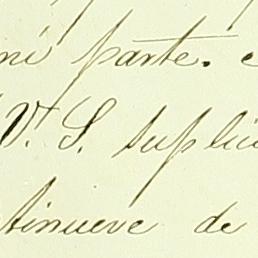 mi parte. e
V. S. suplic
tinueve de